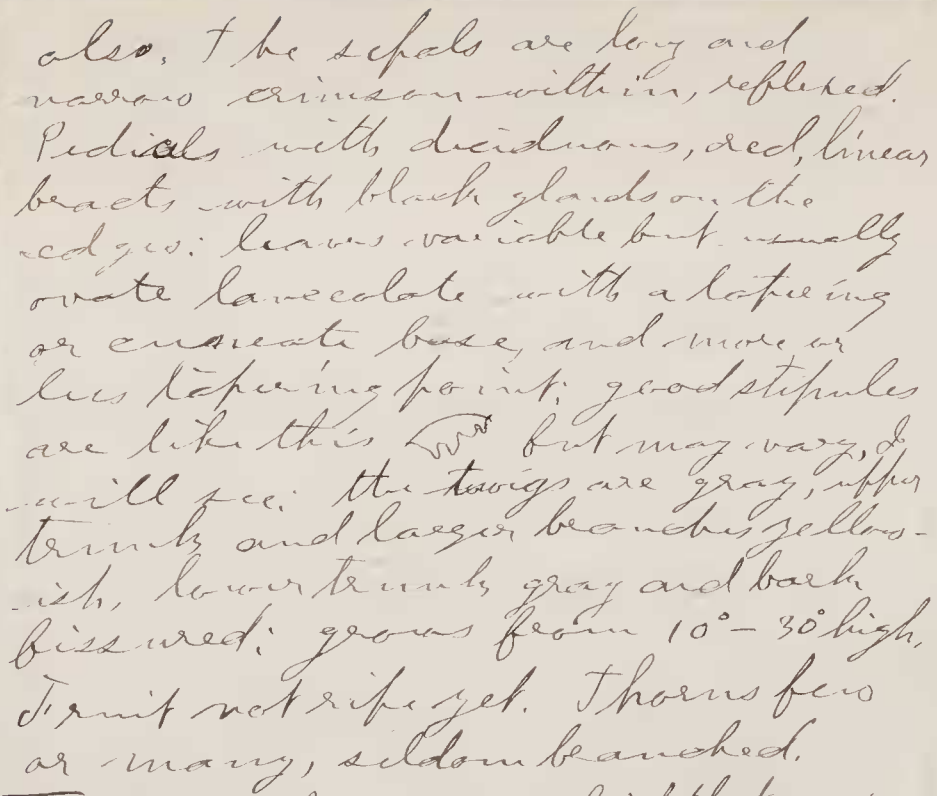 also. The sepals are long and
narrow crimson within, reflexed.
Pedicals with deciduous, red, linear
bracts with black glands on the
edges: leaves variable but usually
ovate lanceolate with a tapering
or cuneate base, and more or
less tapering point; good stipules
are like this but may vary, I
will see: the twigs are gray, upper
trunk and larger branches yellow-
ish, lower trunk gray and bark
fissured; grows from 10° - 30° high.
Fruit not ripe yet. Thorns few
or many, seldom branched.